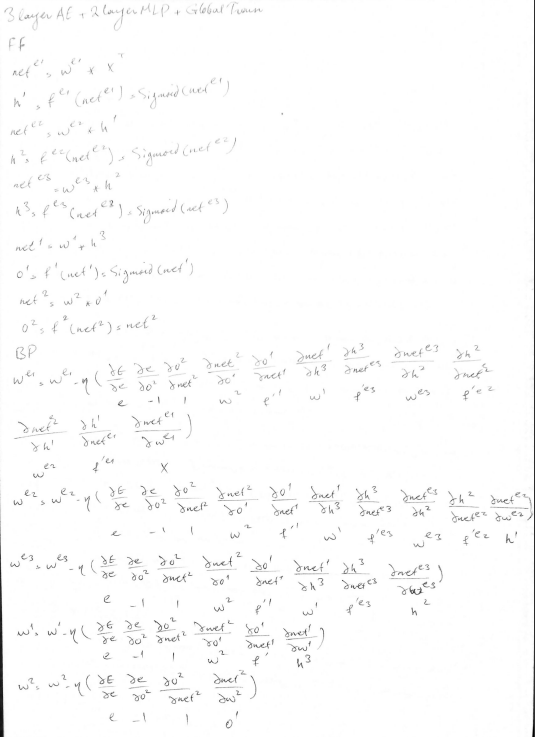 3 layer AE + 2 layer MLP + Global Train
FF
net^e1 = w^e1 * x^T
h^1 = f^e1 (net^e1) = Sigmoid (net^e1)
net^e2 = w^e2 * h^1
h^2 = f^e2 (net^e2) = Sigmoid (net^e2)
net^e3 = w^e3 * h^2
h^3 = f^e3 (net^e3) = Sigmoid (net^e3)
net^1 = w^1 * h^3
o^1 = f^1 (net^1) = Sigmoid (net^1)
net^2 = w^2 * o^1
o^2 = f^2 (net^2) = net^2
BP
w^e1 = w^e1 - η ( ∂E/∂e ∂e/∂o^2 ∂o^2/∂net^2 ∂net^2/∂o^1 ∂o^1/∂net^1 ∂net^1/∂h^3 ∂h^3/∂net^e3 ∂net^e3/∂h^2 ∂h^2/∂net^2
e -1 1 w^2 f'^1 w^1 f'^e3 w^e3 f'^e2
∂net^2/∂h^1 ∂h^1/∂net^e1 ∂net^e1/∂w^e1 )
w^e2 f'^e1 x
w^e2 = w^e2 - η ( ∂E/∂e ∂e/∂o^2 ∂o^2/∂net^2 ∂net^2/∂o^1 ∂o^1/∂net^1 ∂net^1/∂h^3 ∂h^3/∂net^e3 ∂net^e3/∂h^2 ∂h^2/∂net^e2 ∂net^e2/∂w^e2 )
e -1 1 w^2 f'^1 w^1 f'^e3 w^e3 f'^e2 h^1
w^e3 = w^e3 - η ( ∂E/∂e ∂e/∂o^2 ∂o^2/∂net^2 ∂net^2/∂o^1 ∂o^1/∂net^1 ∂net^1/∂h^3 ∂h^3/∂net^e3 ∂net^e3/∂w^e3 )
e -1 1 w^2 f'^1 w^1 f'^e3 h^2
w^1 = w^1 - η ( ∂E/∂e ∂e/∂o^2 ∂o^2/∂net^2 ∂net^2/∂o^1 ∂o^1/∂net^1 ∂net^1/∂w^1 )
e -1 1 w^2 f' h^3
w^2 = w^2 - η ( ∂E/∂e ∂e/∂o^2 ∂o^2/∂net^2 ∂net^2/∂w^2 )
e -1 1 o^1